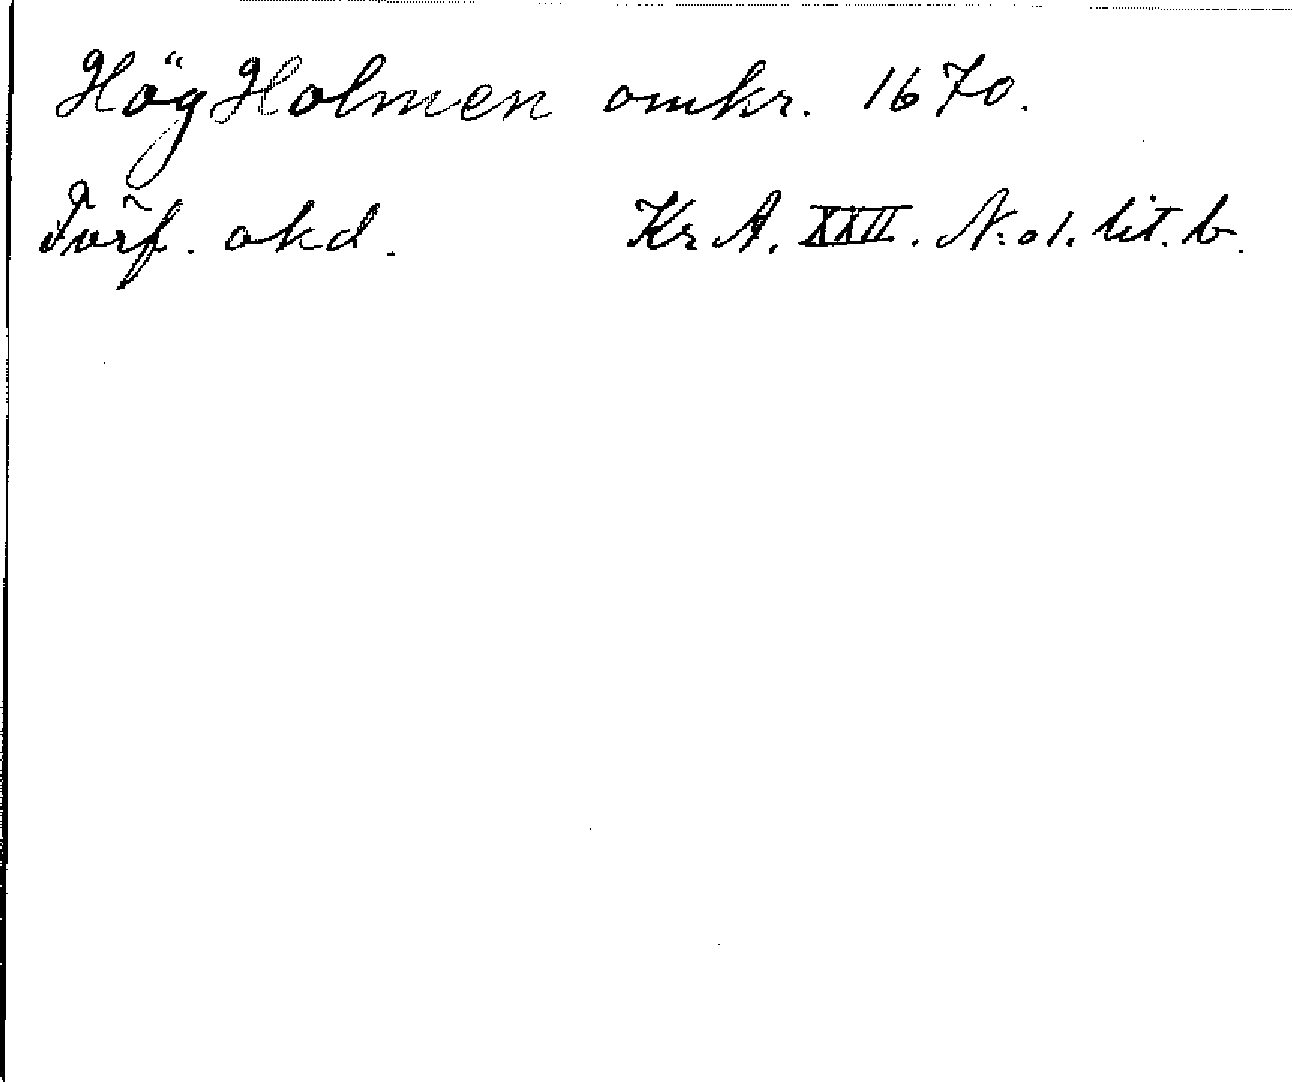 Hög Holmen omkr. 1670.
Förf. okd. Kr A. XXII. N:o 1. lit. b.